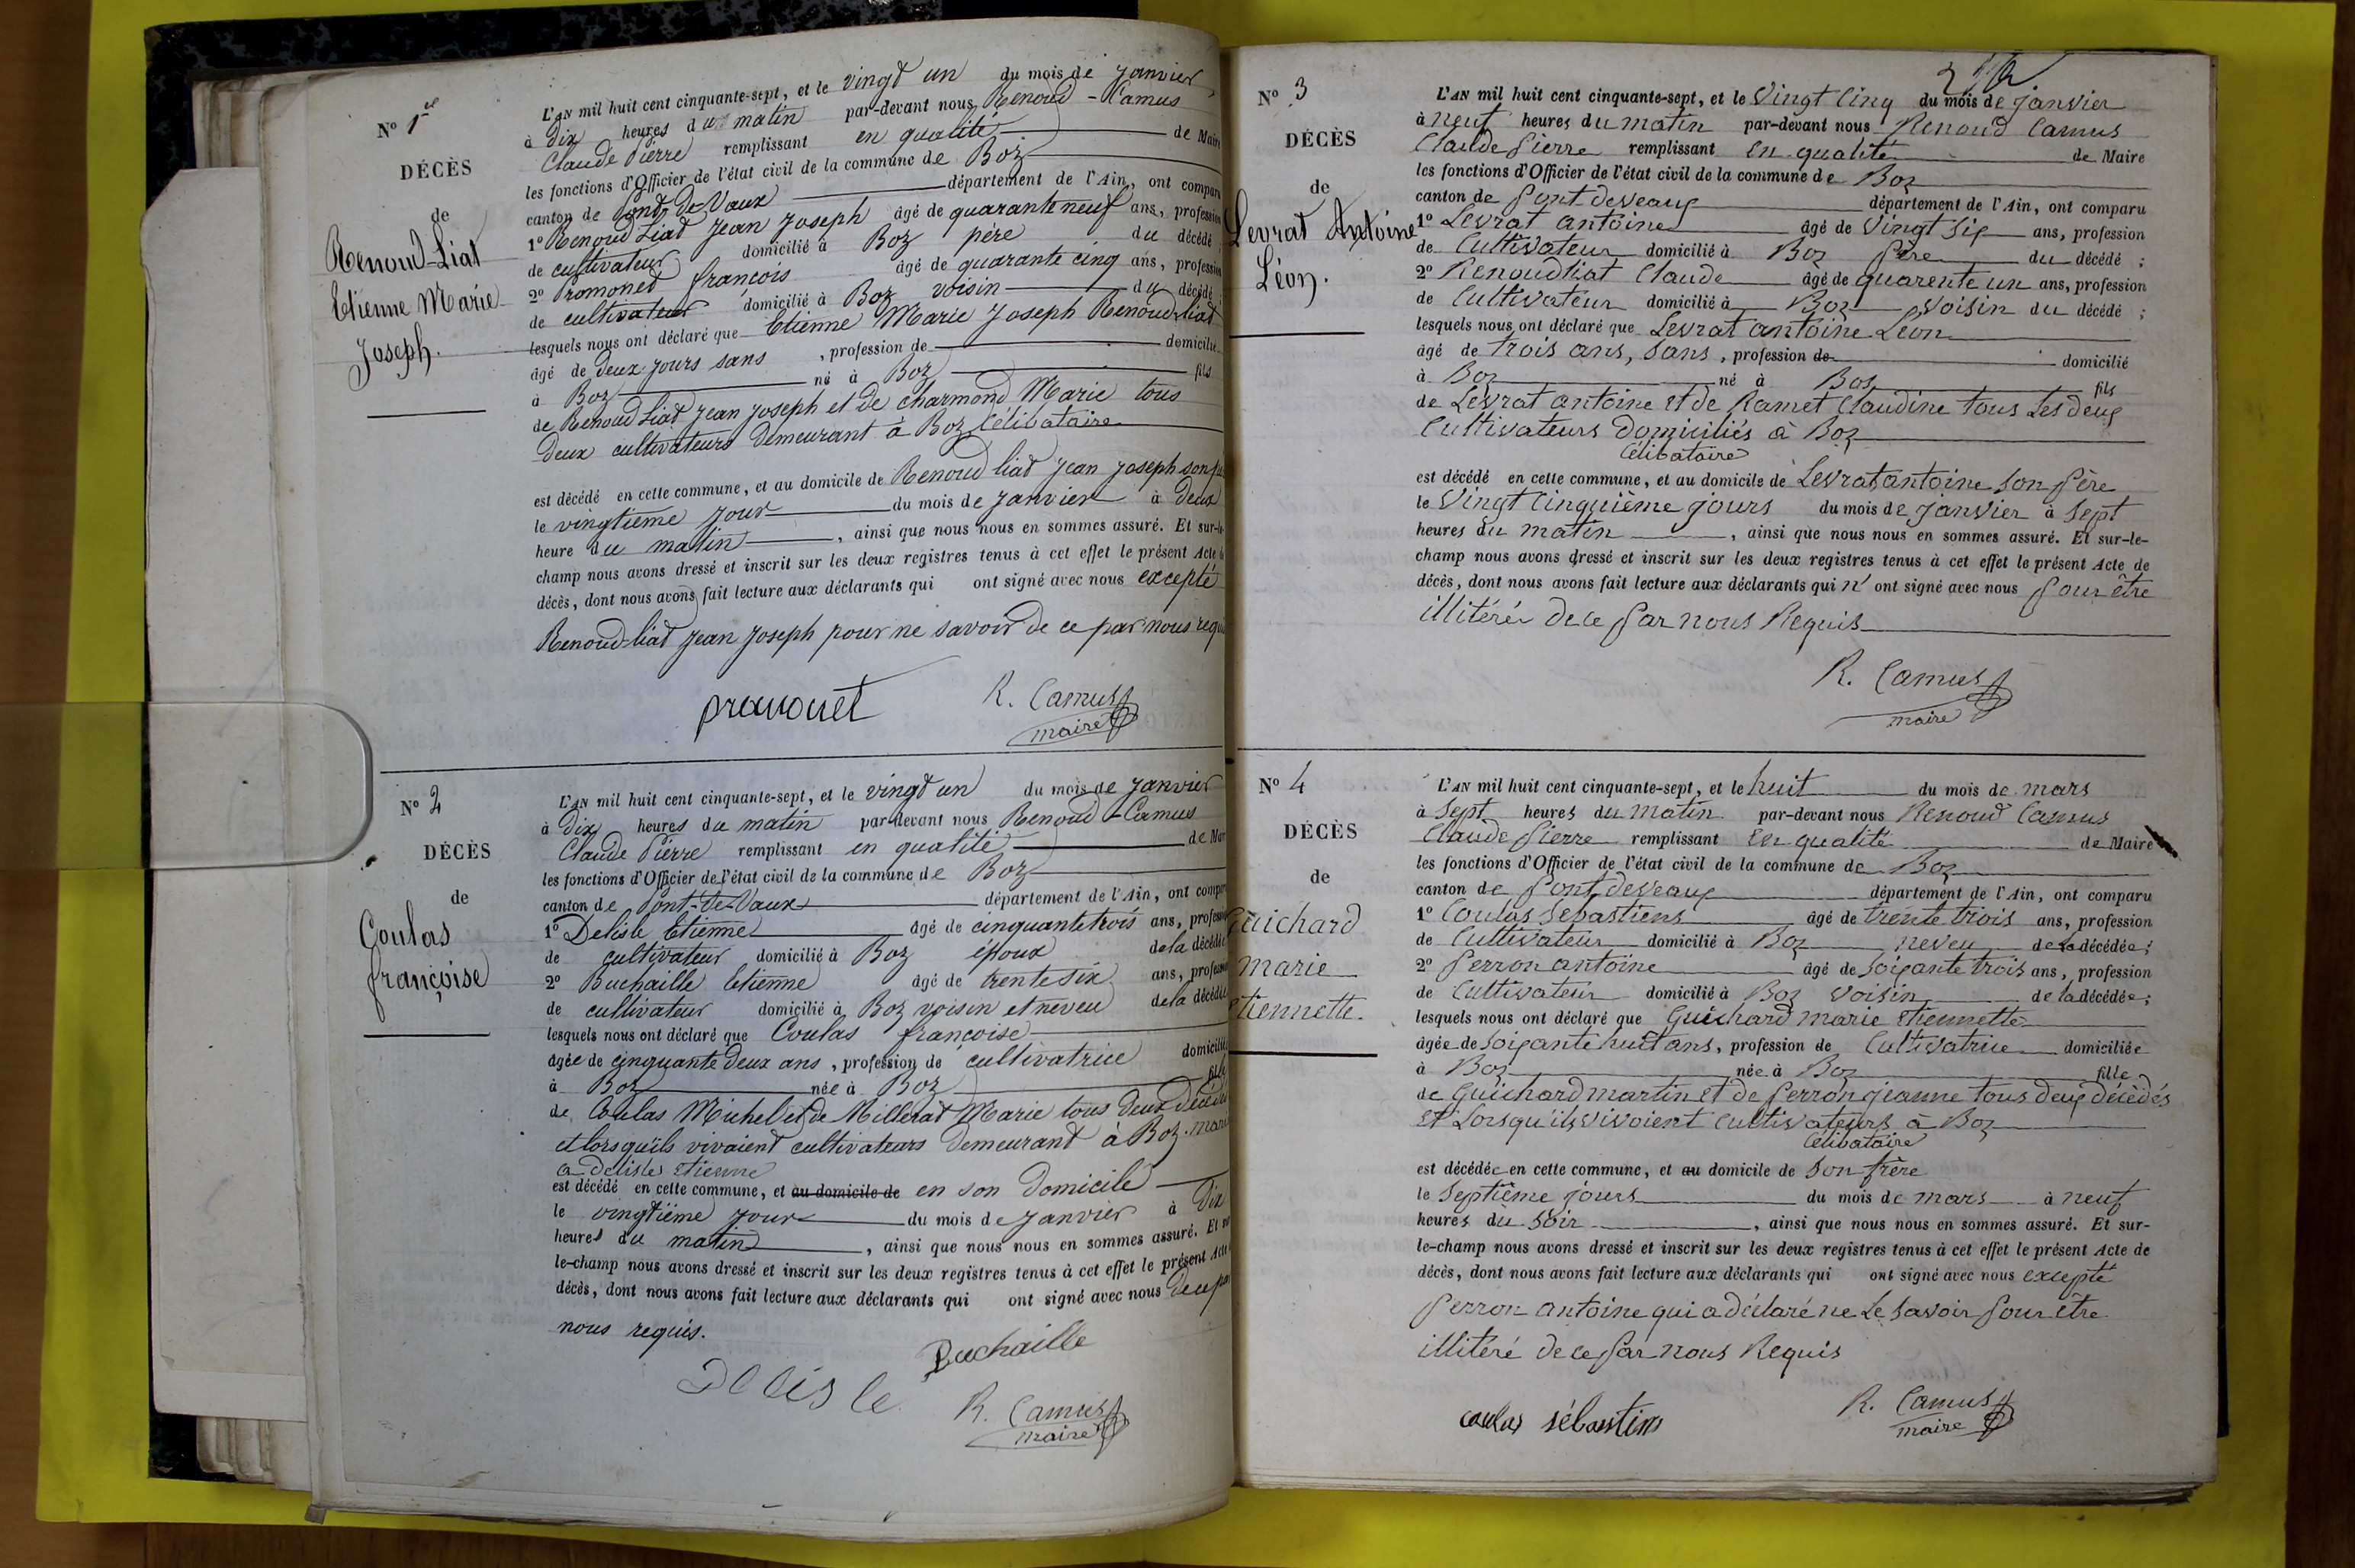 No 1er
DÉCÈS
de
Renoud-Liat
Etienne Marie
Joseph.
L'AN mil huit cent cinquante-sept, et le vingt un du mois de janvier,
à dix heures du matin par-devant nous Renoud-Camus
Claude Pierre remplissant en qualité de Maire
les fonctions d'Officier de l'état civil de la commune de Boz
canton de Pont-de-Vaux département de l'Ain, ont comparu
1º Renoud Liat Jean Joseph âgé de quarante neuf ans, profession
de cultivateur domicilié à Boz père du décédé
2º Promonet françois âgé de quarante cinq ans, profession
de cultivateur domicilié à Boz voisin du décédé
lesquels nous ont déclaré que Etienne Marie Joseph Renoud-liat
âgé de deux jours sans, profession de domicilié
à Boz né à Boz fils
de Renoud Liat Jean Joseph et de charmond Marie tous
deux cultivateurs demeurant à Boz Célibataire
est décédé en cette commune, et au domicile de Renoud liat Jean Joseph son
le vingtième jour du mois de janvier à deux
heure du matin, ainsi que nous nous en sommes assuré. Et sur-le-
champ nous avons dressé et inscrit sur les deux registres tenus à cet effet le présent Acte de
décès, dont nous avons fait lecture aux déclarants qui ont signé avec nous excepté
Renoud-liat Jean Joseph pour ne savoir de ce par nous requ
R. Camus
maire
No 2
DÉCÈS
de
Coulas
françoise
L'AN mil huit cent cinquante-sept, et le vingt un du mois de Janvier
à dix heures du matin par-devant nous Renoud-Camus
Claude Pierre remplissant en qualité de Mai
les fonctions d'Officier de l'état civil de la commune de Boz
canton de Pont-de-Vaux département de l'Ain, ont compar
1º Delisle Etienne âgé de cinquante trois ans, profession
de cultivateur domicilié à Boz époux de la décédée
2º Buchaille Etienne âgé de trente six ans, profession
de cultivateur domicilié à Boz voisin et neveu de la décédée
lesquels nous ont déclaré que Coulas françoise
âgée de cinquante deux ans, profession de cultivatrice domiciliée
à Boz née à Boz fille
de Coulas Michel et de Millerat Marie tous deux décédés
et lorsqu'ils vivaient cultivateurs demeurant à Boz. mari
a delisle Etienne
est décédé en cette commune, et au domicile de en son domicile
le vingtième jour du mois de janvier à dix
heures du matin, ainsi que nous nous en sommes assuré. Et sur
le-champ nous avons dressé et inscrit sur les deux registres tenus à cet effet le présent Acte
décès, dont nous avons fait lecture aux déclarants qui ont signé avec nous de ce par
nous requis.
Buchaille
Delisle
R. Camus
maire
No 3
DÉCÈS
de
Levrat Antoine
Léon.
L'AN mil huit cent cinquante-sept, et le Vingt Cinq du mois de janvier
à neuf heures du matin par-devant nous Renoud Camus
Claude Pierre remplissant en qualité de Maire
les fonctions d'Officier de l'état civil de la commune de Boz
canton de Pont deveaux département de l'Ain, ont comparu
1º Levrat antoine âgé de Vingt six ans, profession
de Cultivateur domicilié à Boz Père du décédé ;
2º Renoudliat Claude âgé de quarente un ans, profession
de Cultivateur domicilié à Boz Voisin du décédé ;
lesquels nous ont déclaré que Levrat antoine Léon
âgé de trois ans, sans, profession de domicilié
à Boz né à Bos fils
de Levrat antoine et de Ramet Claudine tous Les deux
Cultivateurs Domiciliés à Boz
Célibataire
est décédé en cette commune, et au domicile de Levrat antoine son Père
le Vingt Cinquième jours du mois de janvier à sept
heures du matin, ainsi que nous nous en sommes assuré. Et sur-le-
champ nous avons dressé et inscrit sur les deux registres tenus à cet effet le présent Acte de
décès, dont nous avons fait lecture aux déclarants qui n' ont signé avec nous Pour être
illitérés de ce Par nous Requis
R. Camus
maire
No 4
DÉCÈS
de
Guichard
marie
Etiennette.
L'AN mil huit cent cinquante-sept, et le huit du mois de mars
à Sept heures du matin par-devant nous Renoud Camus
Claude Pierre remplissant en qualité de Maire
les fonctions d'Officier de l'état civil de la commune de Boz
canton de Pont, deveaux département de l'Ain, ont comparu
1º Coulas Sebastiens âgé de trente trois ans, profession
de Cultivateur domicilié à Boz neveu de La décédée ;
2º Perron antoine âgé de Soixante trois ans, profession
de Cultivateur domicilié à Boz Voisin de la décédée ;
lesquels nous ont déclaré que Guichard marie Etiennette
âgée de Soixante huit ans, profession de Cultivatrice domiciliée
à Boz née à Boz fille
de Guichard martin et de Perron jeanne tous deux décédés
et Lorsqu'ils vivoient cultivateurs à Boz
Célibataire
est décédée en cette commune, et au domicile de Son frère
le Septième jours du mois de mars à neuf
heures du Soir, ainsi que nous nous en sommes assuré. Et sur-
le-champ nous avons dressé et inscrit sur les deux registres tenus à cet effet le présent Acte de
décès, dont nous avons fait lecture aux déclarants qui ont signé avec nous excepté
Perron antoine qui a déclaré ne Le Savoir Pour être
illitéré de ce Par nous Requis
coulas sébastien
R. Camus
maire